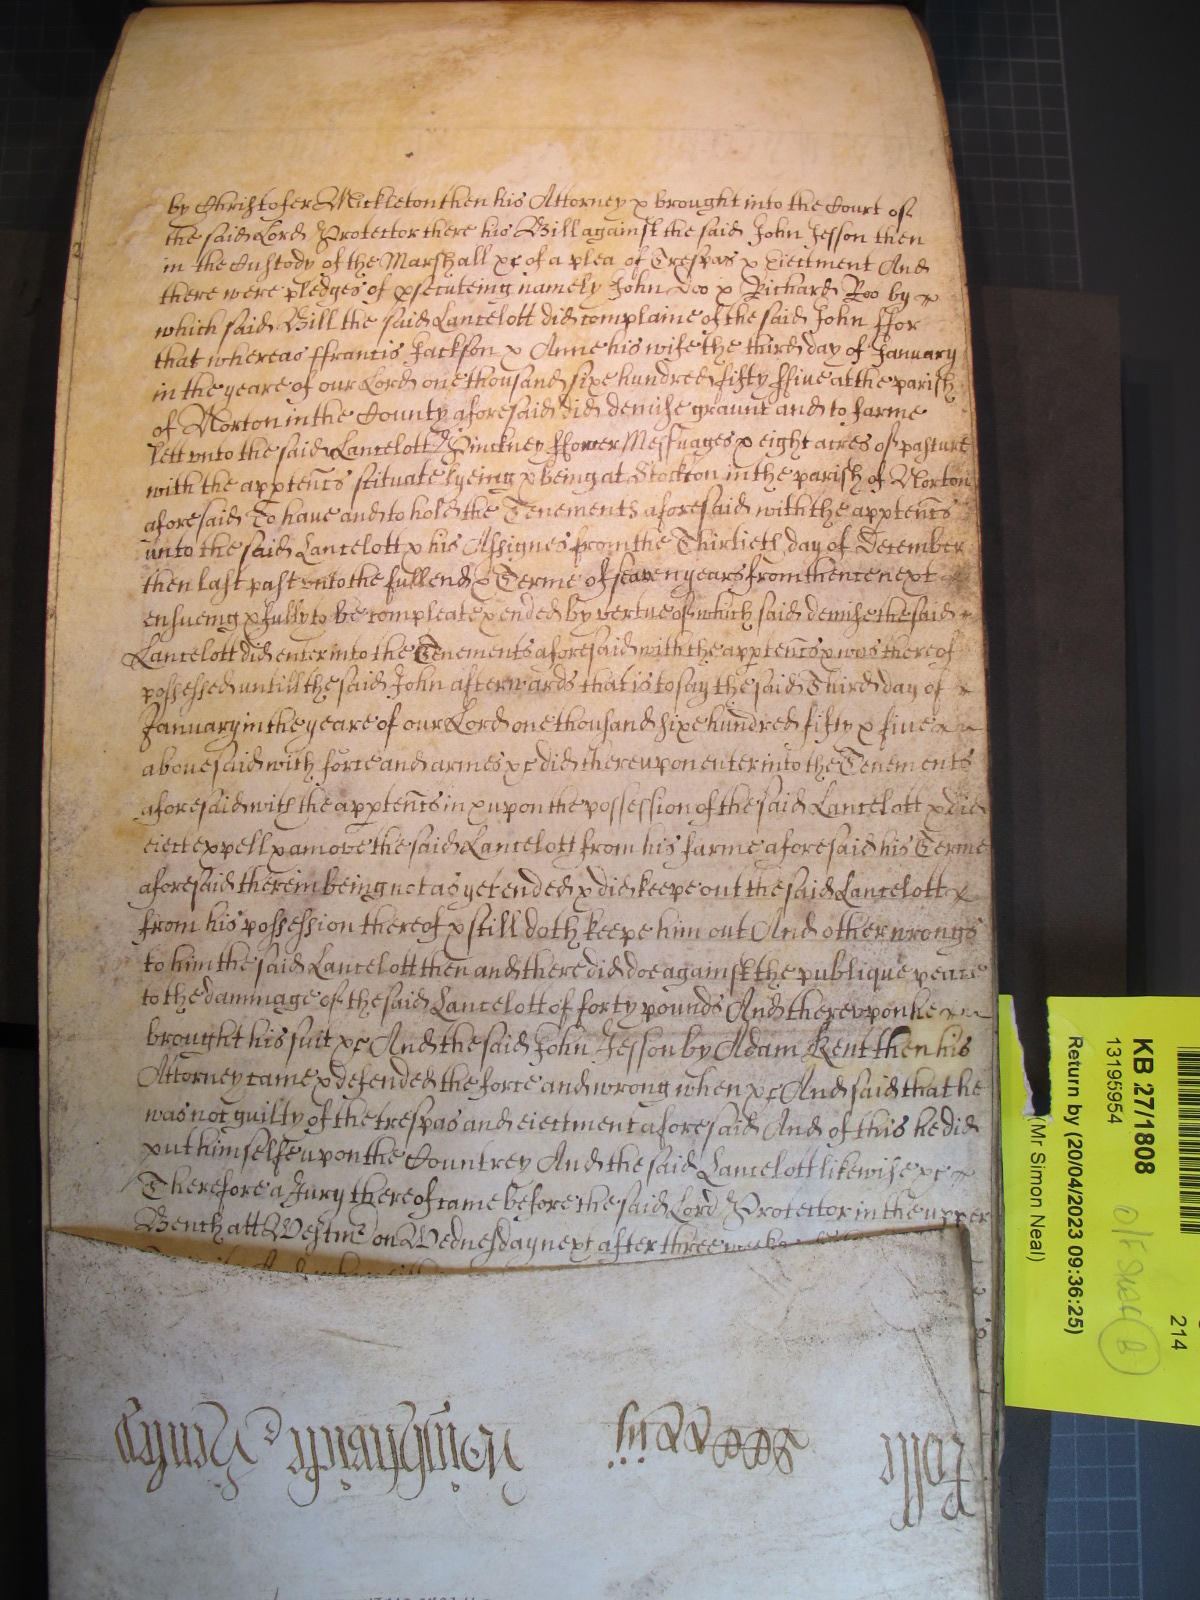 by Christofer Mickleton then his Attorney & brought into the Court of
the said Lord Protector there his Bill against the said John Jesson then
in the Custody of the Marshall &c of a plea of Trespas & Eiectment And
there were pledges of prsecuteing namely John Doo & Richard Roo by
which said Bill the said Lancelott did complaine of the said John ffor
that whereas ffrancis Jackson & Anne his wife the third day of January
in the yeare of our Lord one thousand sixe hundred fifty ffive at the parish
of Norton in the County aforesaid did demise graunt and to farme
lett vnto the said Lancelott Pinckney ffower Messuages & eight acres of pasture
with the apptencs scituate lyeing & being at Stockton in the parish of Norton
aforesaid To have and to hold the Tenements aforesaid with the apptencs
unto the said Lancelott & his Assignes from the Thirtieth day of December
then last past vnto the full end & Terme of seaven yeares from thence next
ensueing & fully to be compleate & ended by vertue of which said demise the said
Lancelott did enter into the Tenements aforesaid with the apptencs & was thereof
possessed untill the said John afterwards that is to say the said Third day of
January in the yeare of our Lord one thousand sixe hundred fifty & five
abovesaid with force and armes &c did thereupon enter into the Tenements
aforesaid with the apptencs in & upon the possession of the said Lancelott & did
eiect expell & amove the said Lancelott from his farme aforesaid his Terme
aforesaid therein being not as yet ended & did keepe out the said Lancelott
from his possession thereof & still doth keepe him out And other wrongs
to him the said Lancelott then and there did doe against the publique peace
to the dammage of the said Lancelott of forty pounds And therevpon he
brought his suit &c And the said John Jesson by Adam Kent then his
Attorney came & defended the force and wrong when &c And said that he
was not guilty of the trespas and eiectment aforesaid And of this he did
put himselfe upon the Countrey And the said Lancelott likewise &c
Therefore a Jury thereof came before the said Lord Protector in the upper
Bench att Westmr on Wednesday next after three weekes
Rolle
KB 27/1808
13195954
Return by (20/04/2023 09:36:25)
(Mr Simon Neal)
214